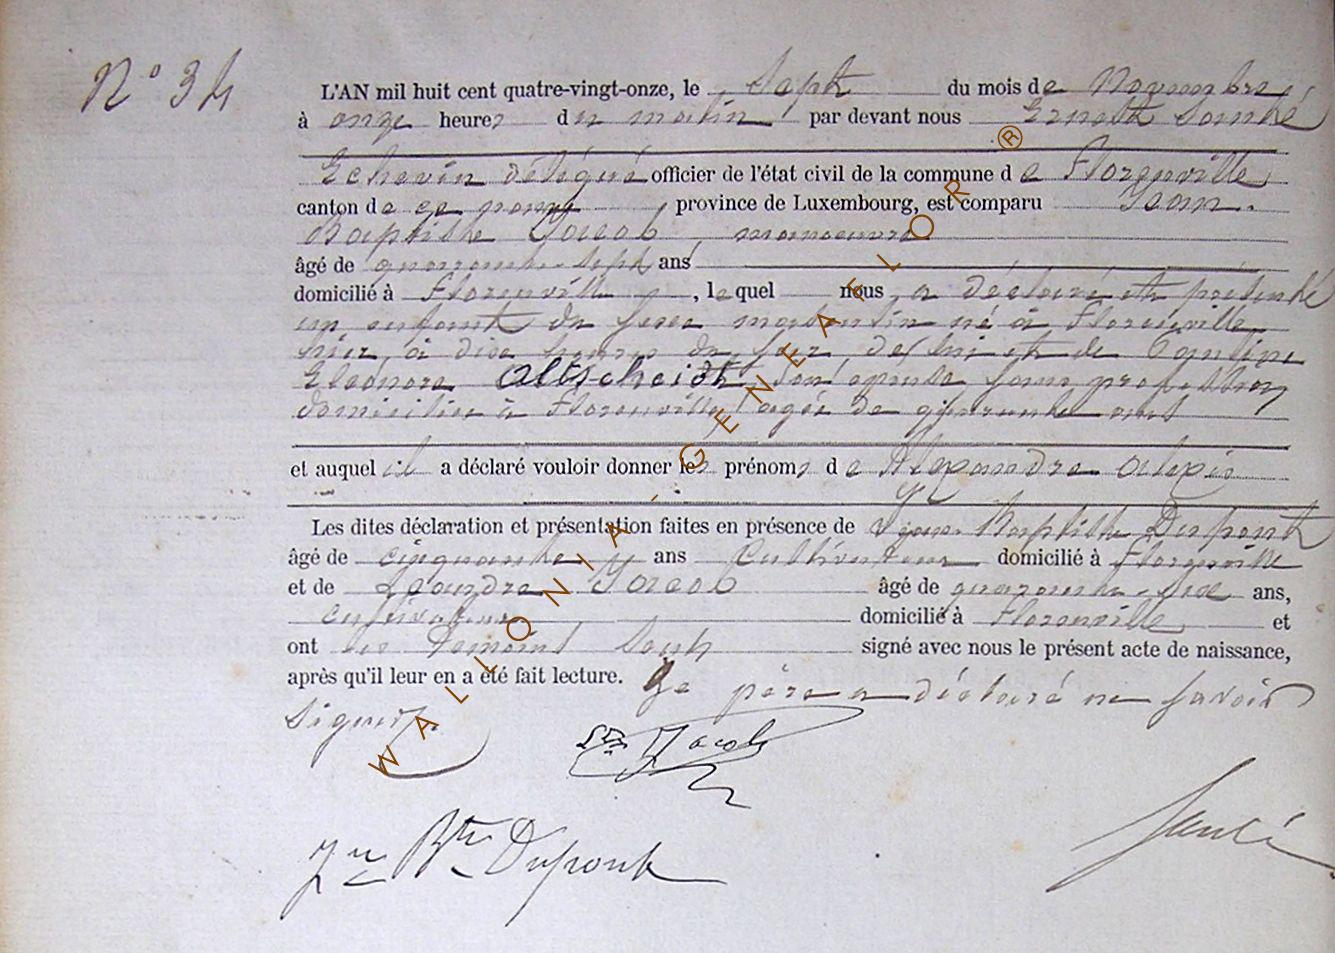 N° 34
L'AN mil huit cent quatre-vingt-onze, le sept du mois de Novembre
à onze heures du matin par devant nous Ernest Sauché
Echevin délégué officier de l'état civil de la commune de Florenville
canton de ce nom province de Luxembourg, est comparu Jean-
Baptiste Jacob, manoeuvre
âgé de quarante-sept ans
domicilié à Florenville, lequel nous a déclaré et présenté
un enfant du sexe masculin né à Florenville,
hier, à dix heures du soir, de lui et de Pauline
Eléonore Altscheidt, son épouse sans profession
domiciliée à Florenville, agée de quarante ans
et auquel il a déclaré vouloir donner les prénoms de Alexandre Alexis
Les dites déclaration et présentation faites en présence de Jean-Baptiste Dupont
âgé de cinquante ans Cultivateur domicilié à Florenville
et de Léandre Jacob âgé de quarante-six ans,
cultivateur domicilié à Florenville et
ont les temoins seuls signé avec nous le présent acte de naissance,
après qu'il leur en a été fait lecture. Le père a déclaré ne savoir
signer.
Jacob
Jn Bte Dupont
WALLONIA-GENEALOR®